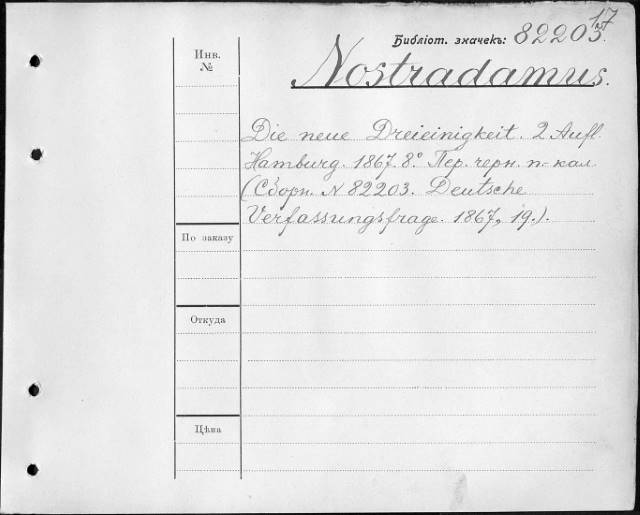 17
Библіот. значекъ: 82203.
Инв.
№
Nostradamus.
Die neue Dreieinigkeit. 2 Aufl.
Hamburg. 1867. 8°. Пер. черн. п-кал.
(Сборн. N 82203. Deutsche
Verfassungsfrage. 1867, 19.).
По заказу
Откуда
Цѣна